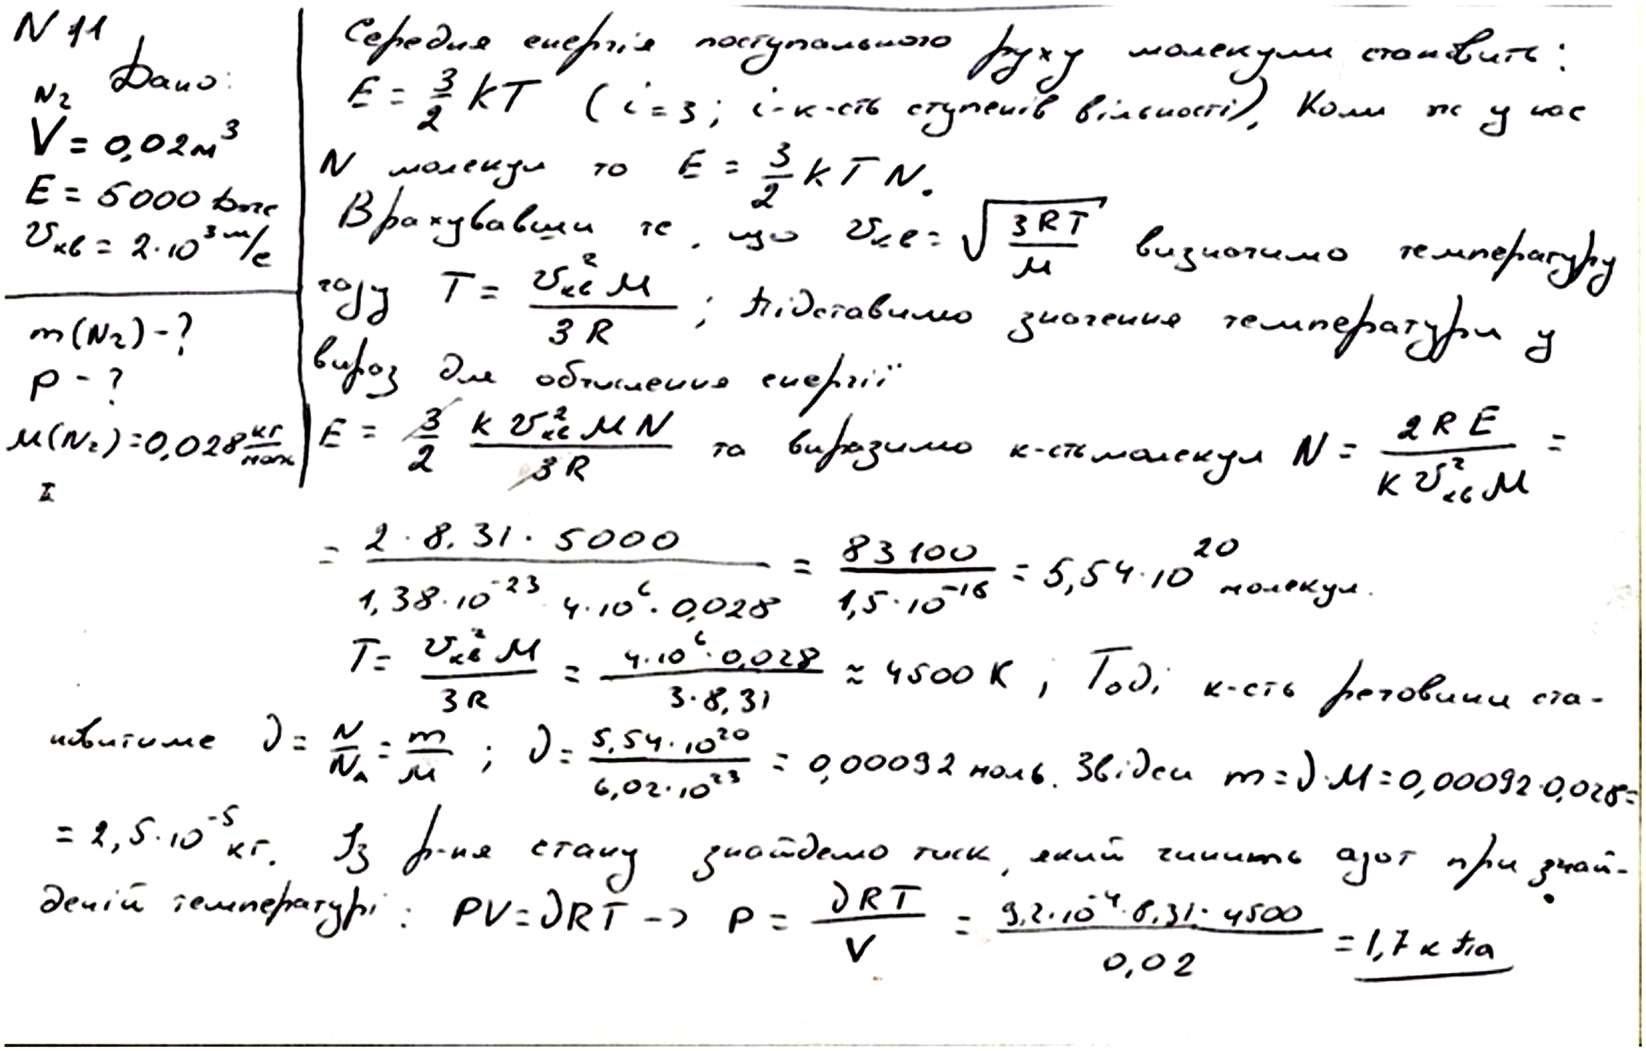 N 11
Дано:
N₂
V = 0,02 м³
E = 5000 Дж
υкв = 2·10³ м/с
m(N₂) - ?
p - ?
M(N₂) = 0,028 кг/моль
Середня енергія поступального руху молекули становить:
E = 3/2 kT (i = 3; i - к-сть ступенів вільності). Коли ж у нас
N молекул то E = 3/2 k T N.
Врахувавши те, що υкв = √(3RT/M) визначимо температуру
газу T = υкв² M / 3R ; Підставимо значення температури у
вираз для обчислення енергії
E = 3/2 k υкв² M N / 3R та виразимо к-сть молекул N = 2RE / k υкв² M =
= 2 · 8,31 · 5000 / 1,38·10⁻²³ 4·10⁶ · 0,028 = 83100 / 1,5·10⁻¹⁶ = 5,54·10²⁰ молекул.
T = υкв² M / 3R = 4·10⁶ · 0,028 / 3·8,31 ≈ 4500 K ; Тоді к-сть речовини ста-
новитиме ν = N/Nₐ = m/M ; ν = 5,54·10²⁰ / 6,02·10²³ = 0,00092 моль. Звідси m = ν·M = 0,00092·0,028 =
= 2,5·10⁻⁵ кг. Із р-ня стану знайдемо тиск, який чинить азот при знай-
деній температурі: PV = νRT -> P = νRT / V = 9,2·10⁻⁴·8,31·4500 / 0,02 = 1,7 кПа